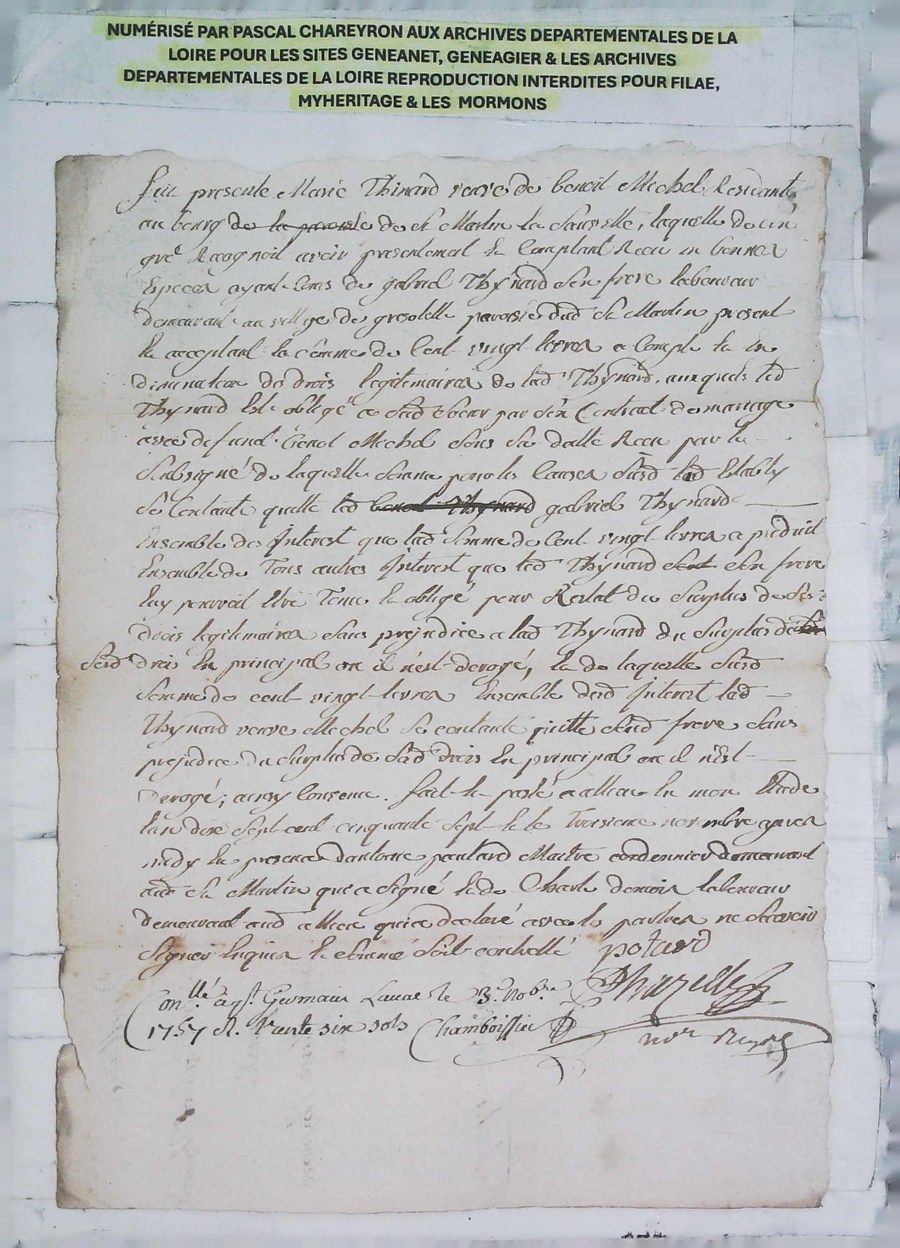 NUMÉRISÉ PAR PASCAL CHAREYRON AUX ARCHIVES DEPARTEMENTALES DE LA
LOIRE POUR LES SITES GENEANET, GENEAGIER & LES ARCHIVES
DEPARTEMENTALES DE LA LOIRE REPRODUCTION INTERDITES POUR FILAE,
MYHERITAGE & LES MORMONS
fut presente Marie Thinard veuve de benoit Mechel Residante
au bourg de la paroisse de St Martin la Sauvetté, laquelle de son
gré Recognoit avoir presentement Et Comptant Receu en bonnes
Especes ayant Cours de gabriel Thynard son frere laboureur
demeurant au village de gresolette paroisse dud St Martin present
Et acceptant la somme de Cent vingt livres a Compte Et en
diminution des drois legitimaires de lad Thynard, auxquels led
Thynard Est obligé a sad soeur par son Contract de mariage
avec defunt benoit Mechel sous sa datte Receu par le
Soubsigné de laquelle somme pour les Causes Susd lad Establi
Se Contante quitte led benoit Thynard gabriel Thynard
Ensemble des Interest que lad somme de Cent vingt livres a produit
Ensemble de Tous autres Interest que led Thynard son frere
luy pouvoit Etre Tenu Et obligé pour Restat du surplus de ses
drois legitimaires sans prejudice a lad Thynard du surplus de
sesd drois En principal ou il n'est derogé, Et de laquelle susd
somme de cent vingt livres Ensemble desd Interest lad
Thynard veuve Mechel se contante quitte sond frere sans
prejudice du surplus de sesd drois En principal ou il n'est
derogé; ainsy Convenu. fait Et passé a allieu En mon Etude
l'an dix Sept cent cinquante sept Et le Troisieme novembre apres
midy En presence d'antoine poutard Maitre cordonnier demeurant
aud St Martin qui a signé Et de Charle demois laboureur
demeurant aud allieu qui a declaré avec les parties ne scavoir
Signer Enquis Et sommé soit controllé potard
Conllé a St Germain Laval le 3e Nobre Chazelle
1757 R. Trente six sols Chamboissier nore Royal